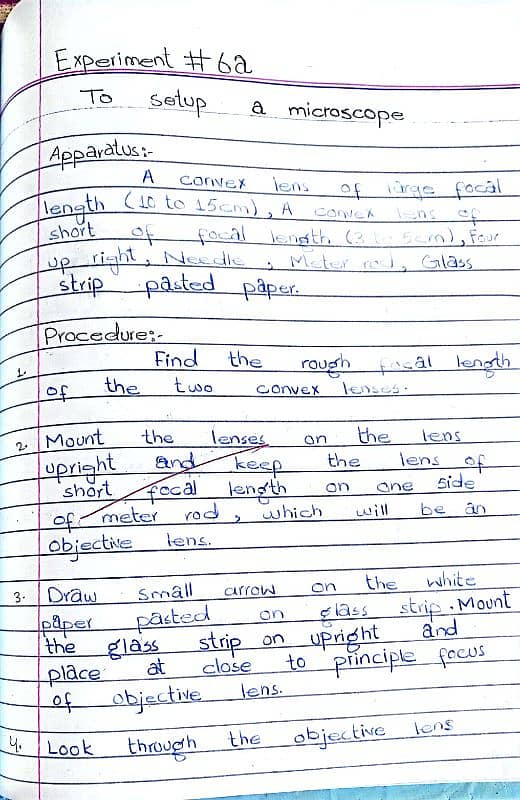 Experiment # 6a
To setup a microscope
Apparatus:-
A convex lens of large focal
length (10 to 15cm), A convex lens of
short of focal length (3 to 5cm), Four
up right, Needle, Meter rod, Glass
strip pasted paper.
Procedure:-
1. Find the rough focal length
of the two convex lenses.
2. Mount the lenses on the lens
upright and keep the lens of
short focal length on one side
of meter rod, which will be an
objective lens.
3. Draw small arrow on the white
paper pasted on glass strip. Mount
the glass strip on upright and
place at close to principle focus
of objective lens.
4. Look through the objective lens